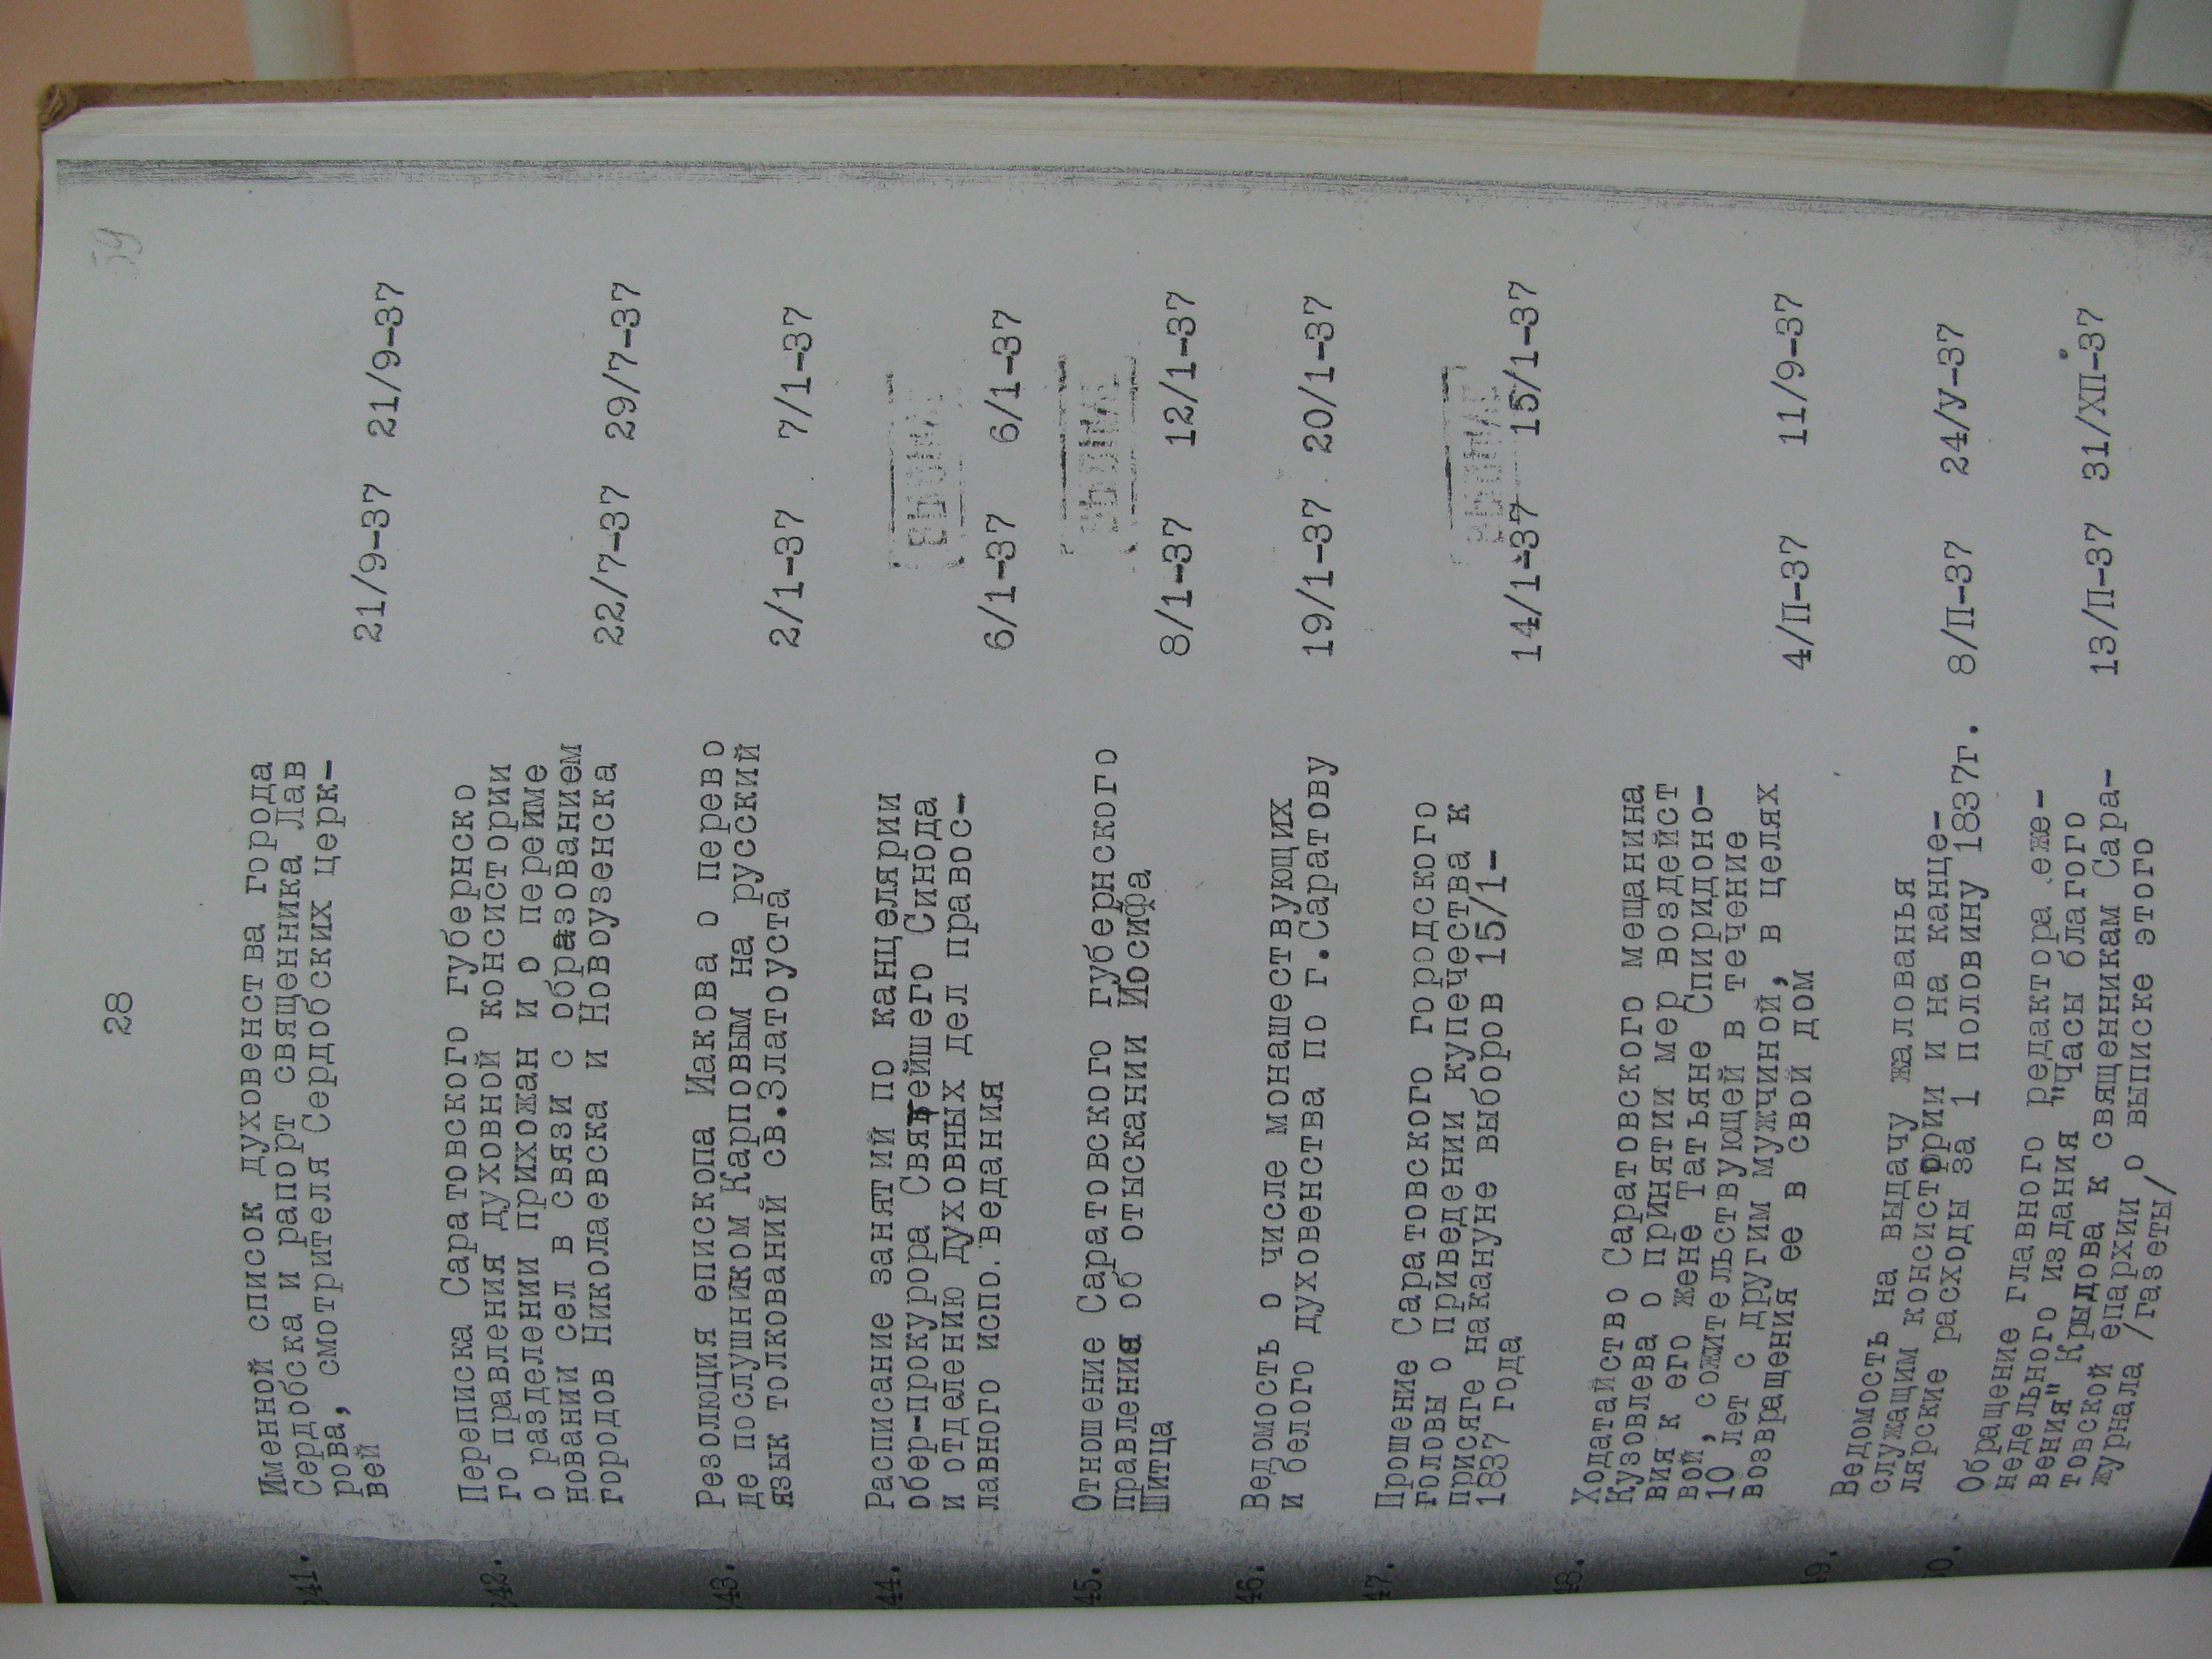 28
59
241. Именной список духовенства города
Сердобска и рапорт священника Лав
рова, смотрителя Сердобских церк-
вей 21/9-37 21/9-37
242. Переписка Саратовского губернско
го правления духовной консистории
о разделении прихожан и о переиме
новании сел в связи с образованием
городов Николаевска и Новоузенска 22/7-37 29/7-37
243. Резолюция епископа Иакова о перево
де послушником Карповым на русский
язык толкований св.Златоуста 2/1-37 7/1-37
44. Расписание занятий по канцелярии
обер-прокурора Святейшего Синода
и отделению духовных дел правос-
лавного испо.ведания 6/1-37 6/1-37
ВЫБЫЛ
45. Отношение Саратовского губернского
правления об отыскании Иосифа
Шитца 8/1-37 12/1-37
ВЫБЫЛ
46. Ведомость о числе монашествующих
и белого духовенства по г.Саратову 19/1-37 20/1-37
47. Прошение Саратовского городского
головы о приведении купечества к
присяге накануне выборов 15/1-
1837 года 14/1-37 15/1-37
ВЫБЫЛ
48. Ходатайство Саратовского мещанина
Кузовлева о принятии мер воздейст
вия к его жене Татьяне Спиридоно-
вой, сожительствующей в течение
10 лет с другим мужчиной, в целях
возвращения ее в свой дом 4/П-37 11/9-37
49. Ведомость на выдачу жалованья
служащим консистории и на канце-
лярские расходы за 1 половину 1837г. 8/П-37 24/У-37
50. Обращение главного редактора еже-
недельного издания "Часы благого
вения" Крыдова к священникам Сара-
товской епархии о выписке этого
журнала /газеты/ 13/П-37 31/ХП-37